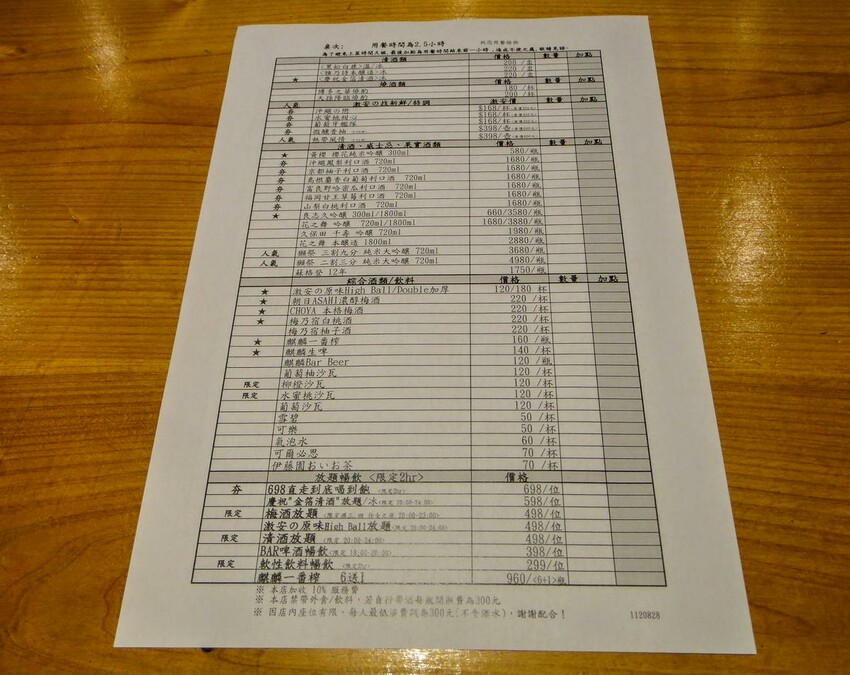 桌次: 用餐時間為2.5小時
清酒類 價格 數量 加點
200 /壺
220 /壺
★ <慶祝金箔清酒>冰 220 /壺
燒酒類 價格 數量 加點
博多之華燒酌 180 /杯
天孫降臨燒酌 200 /杯
人氣 激安の技術鮮/特調 激安價 數量 加點
夯 沖繩の戀 $168/杯
夯 水蜜桃甜心 $168/杯
夯 葡萄牙艦隊 $168/杯
夯 $398/壺
人氣 熱帶風情 $398/壺
清酒、威士忌、果實酒類 價格 數量 加點
★ 黃櫻 櫻花純米吟釀 300ml 580/瓶
夯 沖繩鳳梨利口酒 720ml 1680/瓶
夯 京都柚子利口酒 720ml 1680/瓶
夯 島根麝香白葡萄利口酒 720ml 1680/瓶
夯 富良野哈密瓜利口酒 720ml 1680/瓶
夯 福岡甘王草莓利口酒 720ml 1680/瓶
夯 山梨白桃利口酒 720ml 1680/瓶
★ 良志久吟釀 300ml/1800ml 660/3580/瓶
花之舞 吟釀 720ml/1800ml 1680/3880/瓶
久保田 千壽 吟釀 720ml 1980/瓶
花之舞 本釀造 1800ml 2880/瓶
人氣 獺祭 三割九分 純米大吟釀 720ml 3680/瓶
人氣 獺祭 二割三分 純米大吟釀 720ml 4980/瓶
蘇格登 12年 1750/瓶
綜合酒類/飲料 價格 數量 加點
★ 激安の原味High Ball/Double加厚 120/180 杯
★ 朝日ASAHI濃醇梅酒 220 /杯
★ CHOYA 本格梅酒 220 /杯
★ 梅乃宿白桃酒 220 /杯
梅乃宿柚子酒 220 /杯
★ 麒麟一番榨 160 /瓶
★ 麒麟生啤 140 /杯
麒麟Bar Beer 120 /瓶
葡萄柚沙瓦 120 /杯
限定 柳橙沙瓦 120 /杯
限定 水蜜桃沙瓦 120 /杯
葡萄沙瓦 120 /杯
雪碧 50 /杯
可樂 50 /杯
氣泡水 60 /杯
可爾必思 70 /杯
伊藤園おいお茶 70 /杯
放題暢飲 <限定2hr> 價格
夯 698直走到底喝到飽<限定2hr> 698/位
慶祝"金箔清酒"放題/冰<限定 20:00-24:00> 598/位
限定 梅酒放題 498/位
激安の原味High Ball放題<限定 20:00-24:00> 498/位
限定 清酒放題<限定 20:00-24:00> 498/位
BAR啤酒暢飲<限定 18:00-20:00> 398/位
限定 軟性飲料暢飲<限定2hr> 299/位
麒麟一番榨 6送1 960/<6+1>瓶
※ 本店加收 10% 服務費
※ 本店禁帶外食/飲料, 若自行帶酒每瓶開瓶費為300元
※ 因店內座位有限, 每人最低消費額為300元(不含酒水), 謝謝配合!
1120828